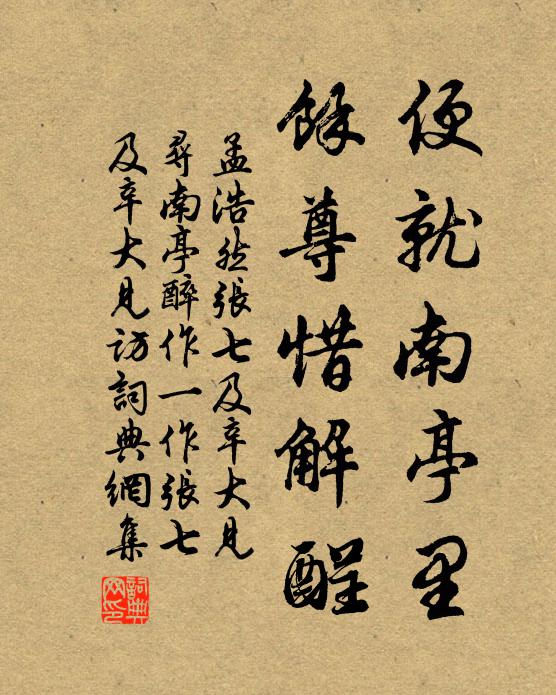 便就南亭里
餘尊惜解酲
孟浩然張七及辛大見
尋南亭醉作一作張七
及辛大見訪詞典網集
詞典
网印